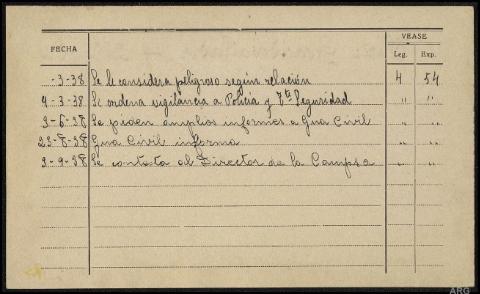 FECHA
VEASE
Leg. Exp.
-3-38 Se le considera peligroso según relación 4 54
4-3-38 Se ordena vigilancia a Policía y Seguridad " "
3-6-38 Se piden amplios informes a Gua Civil " "
23-8-38 Gua Civil informa " "
3-9-38 Se contesta al Director de la Campsa " "
ARG